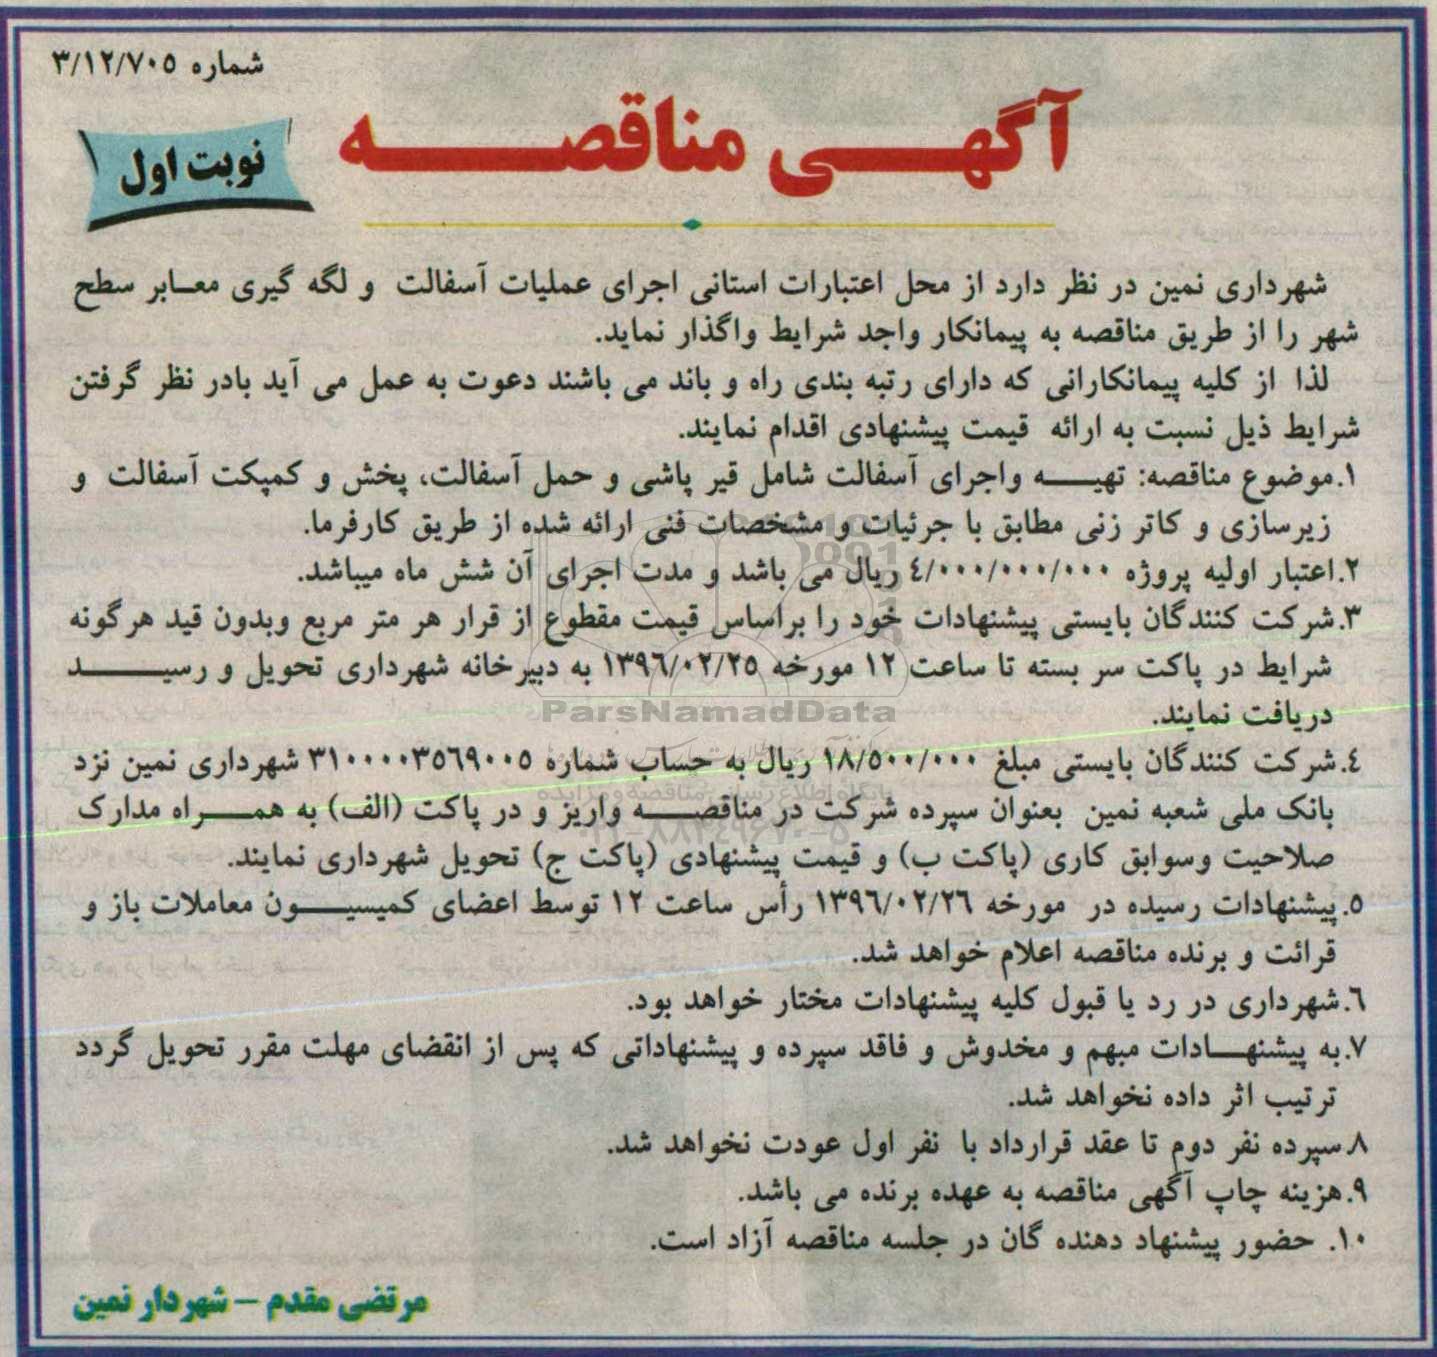 شماره ۳/۱۲/۷۰۵
آگهی مناقصه
نوبت اول
شهرداری نمین در نظر دارد از محل اعتبارات استانی اجرای عملیات آسفالت و لگه گیری معابر سطح
شهر را از طریق مناقصه به پیمانکار واجد شرایط واگذار نماید.
لذا از کلیه پیمانکارانی که دارای رتبه بندی راه و باند می باشند دعوت به عمل می آید بادر نظر گرفتن
شرایط ذیل نسبت به ارائه قیمت پیشنهادی اقدام نمایند.
۱.موضوع مناقصه: تهیه واجرای آسفالت شامل قیر پاشی و حمل آسفالت، پخش و کمپکت آسفالت و
زیرسازی و کاتر زنی مطابق با جرئیات و مشخصات فنی ارائه شده از طریق کارفرما.
۲.اعتبار اولیه پروژه ۴/۰۰۰/۰۰۰/۰۰۰ ریال می باشد و مدت اجرای آن شش ماه میباشد.
۳.شرکت کنندگان بایستی پیشنهادات خود را براساس قیمت مقطوع از قرار هر متر مربع وبدون قید هرگونه
شرایط در پاکت سر بسته تا ساعت ۱۲ مورخه ۱۳۹۶/۰۲/۲۵ به دبیرخانه شهرداری تحویل و رسید
دریافت نمایند.
ParsNamadData
۴.شرکت کنندگان بایستی مبلغ ۱۸/۵۰۰/۰۰۰ ریال به حساب شماره ۳۱۰۰۰۰۳۵۶۹۰۰۵ شهرداری نمین نزد
پایگاه اطلاع رسانی مناقصه و مزایده
بانک ملی شعبه نمین بعنوان سپرده شرکت در مناقصه واریز و در پاکت (الف) به همراه مدارک
صلاحیت وسوابق کاری (پاکت ب) و قیمت پیشنهادی (پاکت ج) تحویل شهرداری نمایند.
۵.پیشنهادات رسیده در مورخه ۱۳۹۶/۰۲/۲۶ رأس ساعت ۱۲ توسط اعضای کمیسیون معاملات باز و
قرائت و برنده مناقصه اعلام خواهد شد.
۶.شهرداری در رد یا قبول کلیه پیشنهادات مختار خواهد بود.
۷.به پیشنهادات مبهم و مخدوش و فاقد سپرده و پیشنهاداتی که پس از انقضای مهلت مقرر تحویل گردد
ترتیب اثر داده نخواهد شد.
۸.سپرده نفر دوم تا عقد قرارداد با نفر اول عودت نخواهد شد.
۹.هزینه چاپ آگهی مناقصه به عهده برنده می باشد.
۱۰. حضور پیشنهاد دهنده گان در جلسه مناقصه آزاد است.
مرتضی مقدم – شهردار نمین